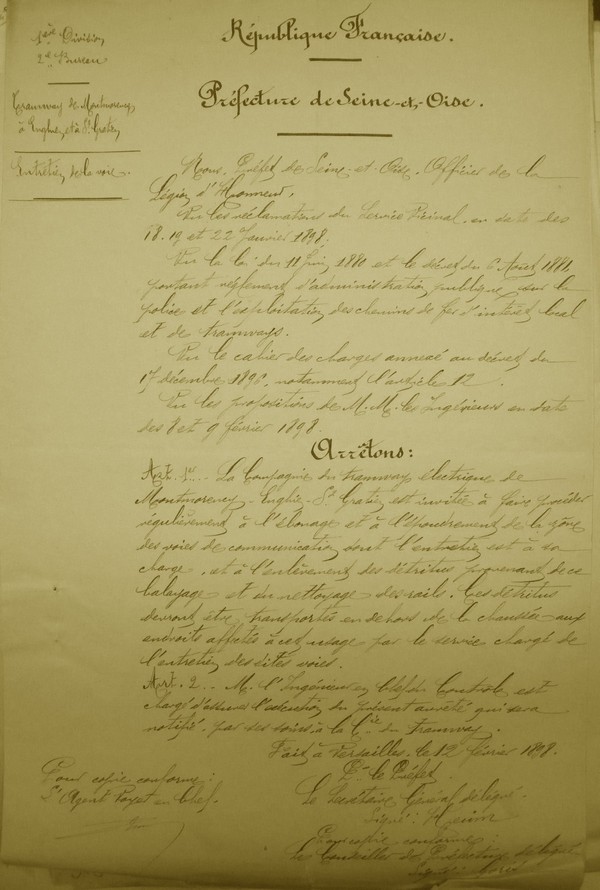 1ère Division
2e Bureau
Tramway de Montmorency
à Enghien et à St Gratien
Entretien de la voie.
République Française.
Préfecture de Seine-et-Oise.
Nous, Préfet de Seine-et-Oise, Officier de la
Légion d'Honneur,
Vu les réclamations du Service Vicinal, en date des
18, 19 et 22 Janvier 1898.
Vu la loi du 11 Juin 1880 et le décret du 6 Août 1881,
portant règlement d'administration publique sur la
police et l'exploitation des chemins de fer d'intérêt local
et de tramways.
Vu le cahier des charges annexé au décret du
17 décembre 1896, notamment l'article 12.
Vu les propositions de M.M. les Ingénieurs en date
des 8 et 9 février 1898.
Arrêtons:
Art. 1er.. La Compagnie du tramway électrique de
Montmorency - Enghien - St Gratien est invitée à faire procéder
régulièrement à l'ébouage et à l'époudrement de la zône
des voies de communication dont l'entretien est à sa
charge, et à l'enlèvement des détritus provenant de ce
balayage et du nettoyage des rails. Ces détritus
devront être transportés en dehors de la chaussée aux
endroits affectés à cet usage par le service chargé de
l'entretien des dites voies.
Art. 2.. M. l'Ingénieur en Chef du Contrôle est
chargé d'assurer l'exécution du présent arrêté qui sera
notifié par ses soins à la Cie du Tramway.
Fait à Versailles, le 12 février 1898.
Pr le Préfet
Le Secrétaire Général délégué.
Signé:
Pour copie conforme:
L'Agent Voyer en Chef.
Pour copie conforme:
Le Conseiller de Préfecture délégué